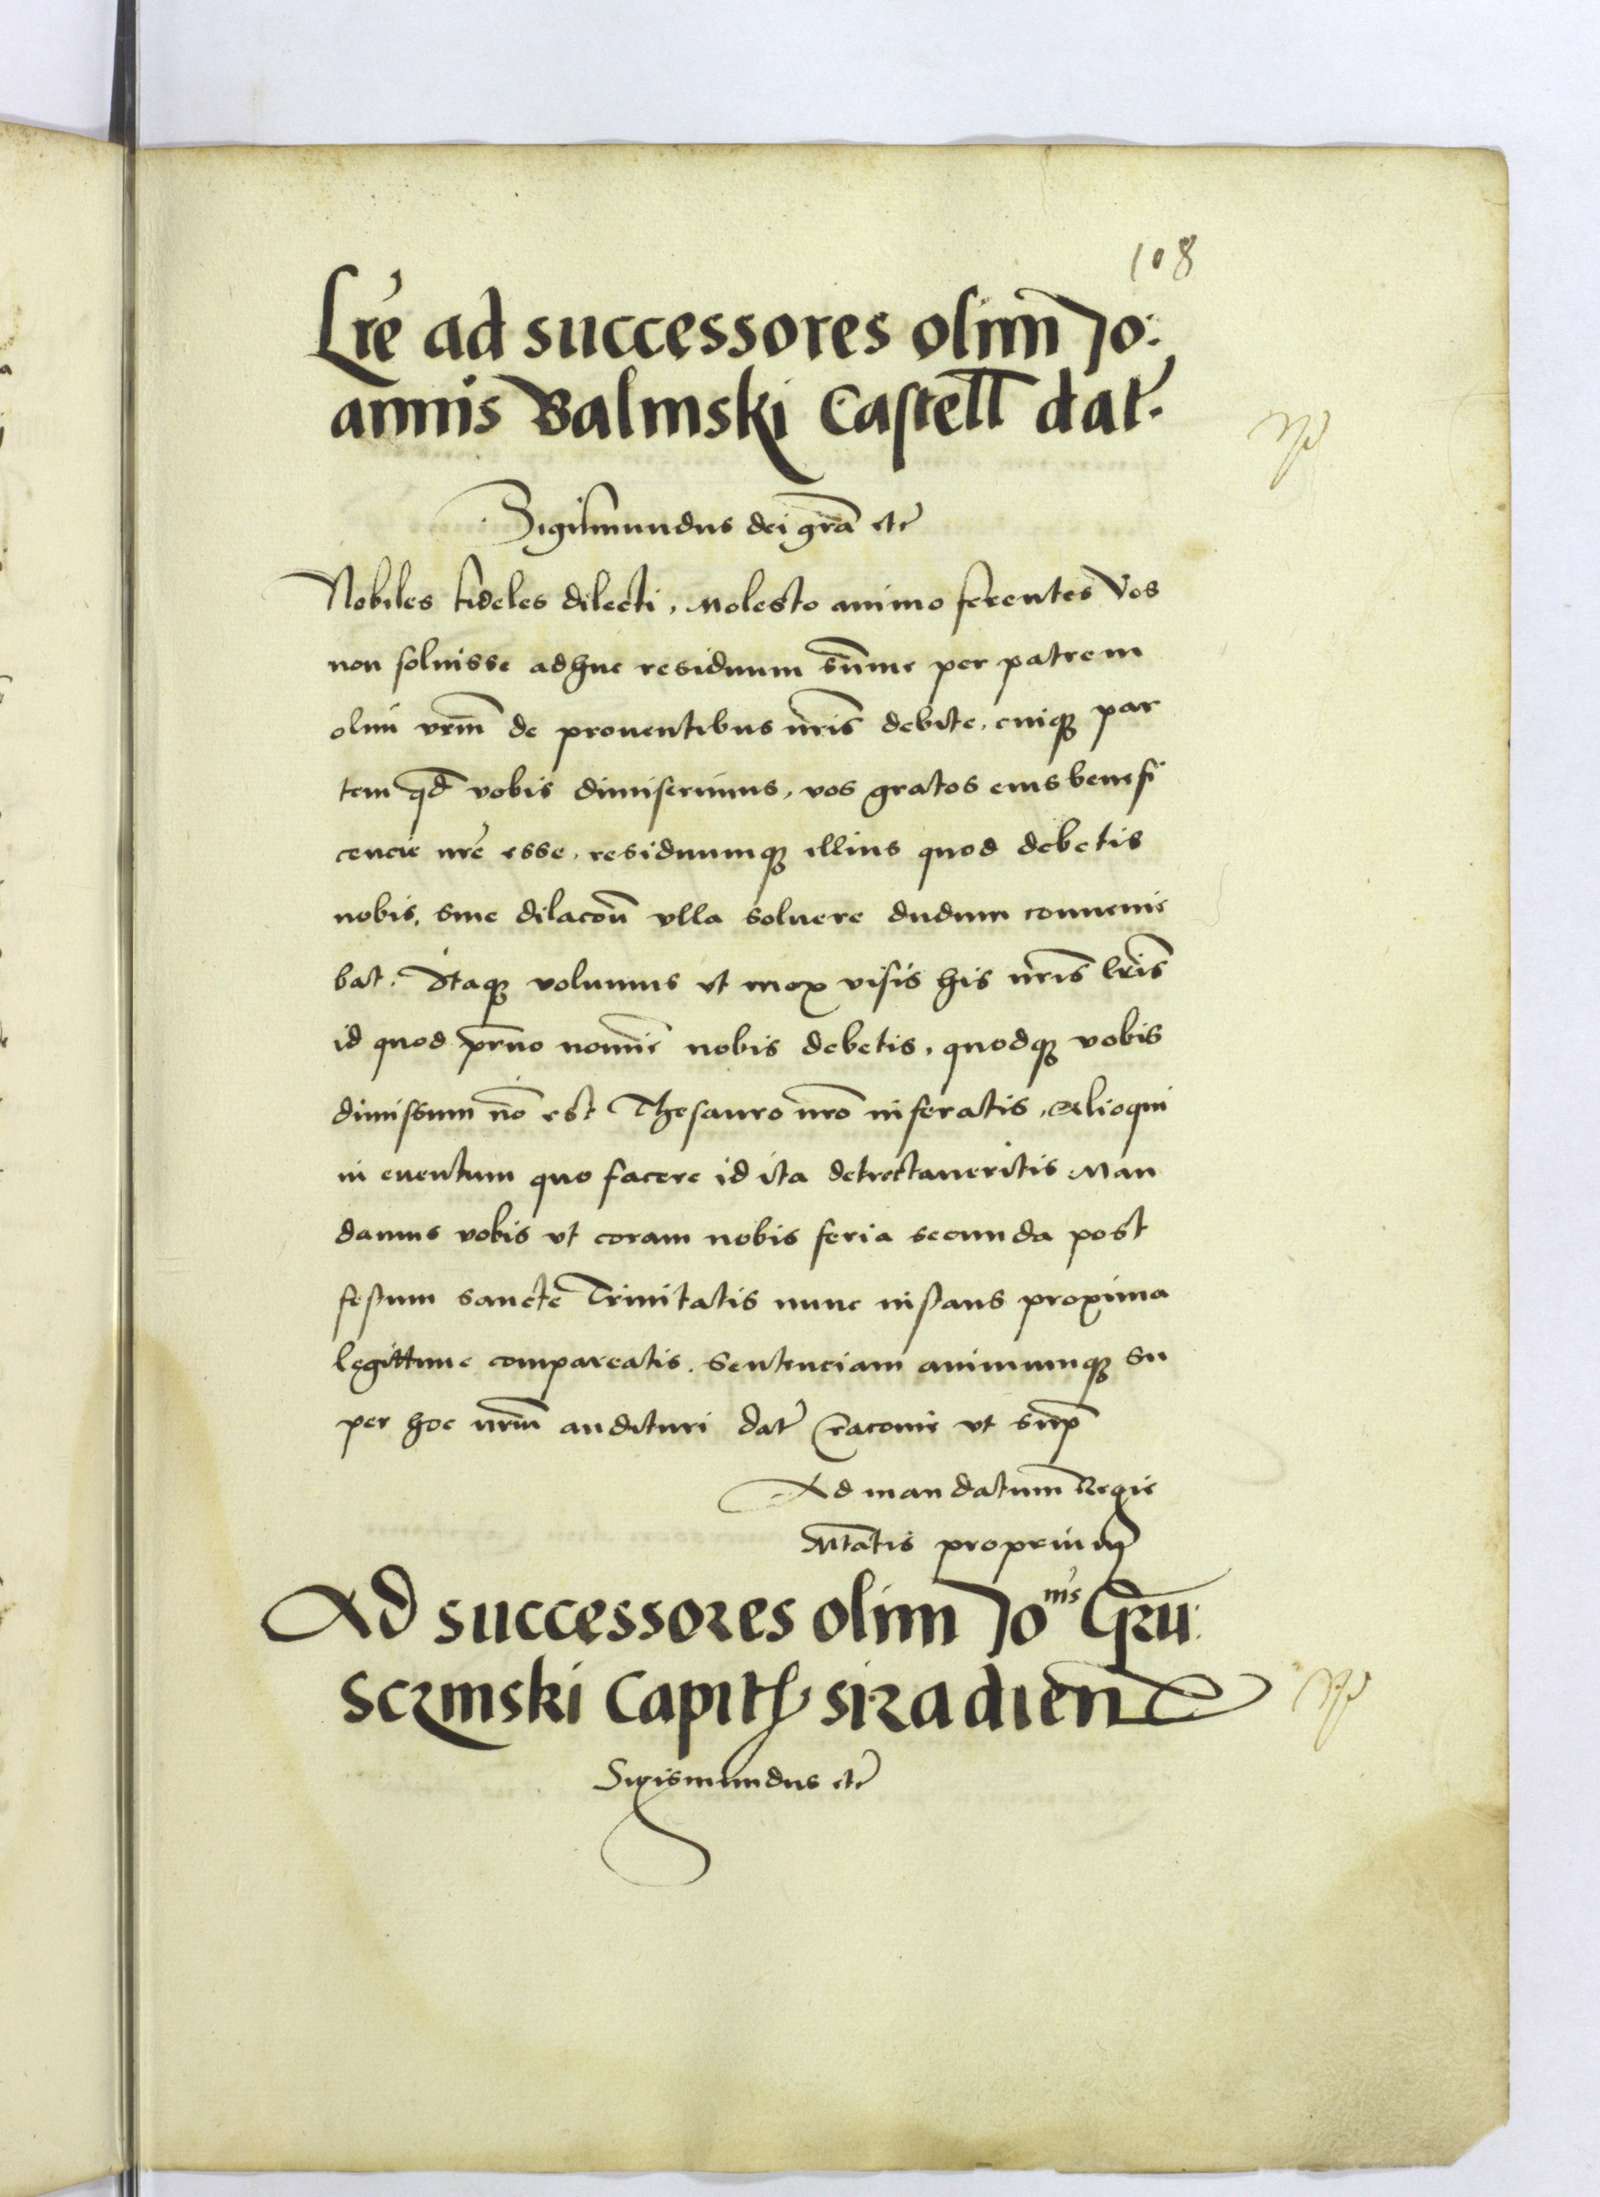 108
Lre ad successores olim Jo:
annis Balinski Castell dat.
Sigismundus dei gra etc
Nobiles fideles dilecti, Molesto animo ferentes Vos
non soluisse adhuc residuum summe per patrem
olim vrm de prouentibus nris debite, cuiq par
tem qd vobis dimiserimus, vos gratos eius benefi
cencie nre esse, residuumq illius quod debetis
nobis, sine dilacon vlla soluere dudum conuenie
bat. Itaq volumus vt mox visis his nris lris
id quod prno nomie nobis debetis, quodq vobis
dimissum no est Thesauro nro inferatis, Alioqui
in euentum quo facere id ita detrectaueritis Man
damus vobis vt coram nobis feria secunda post
festum sancte Trinitatis nunc instans proxima
legittime compareatis. Sentenciam animumq su
per hoc nrm audituri dat Cracouie vt sup
Ad mandatum Regie
Mtatis proprium
Ad successores olim Jo nis Gru:
sczinski Capit siradien
Sigismundus etc